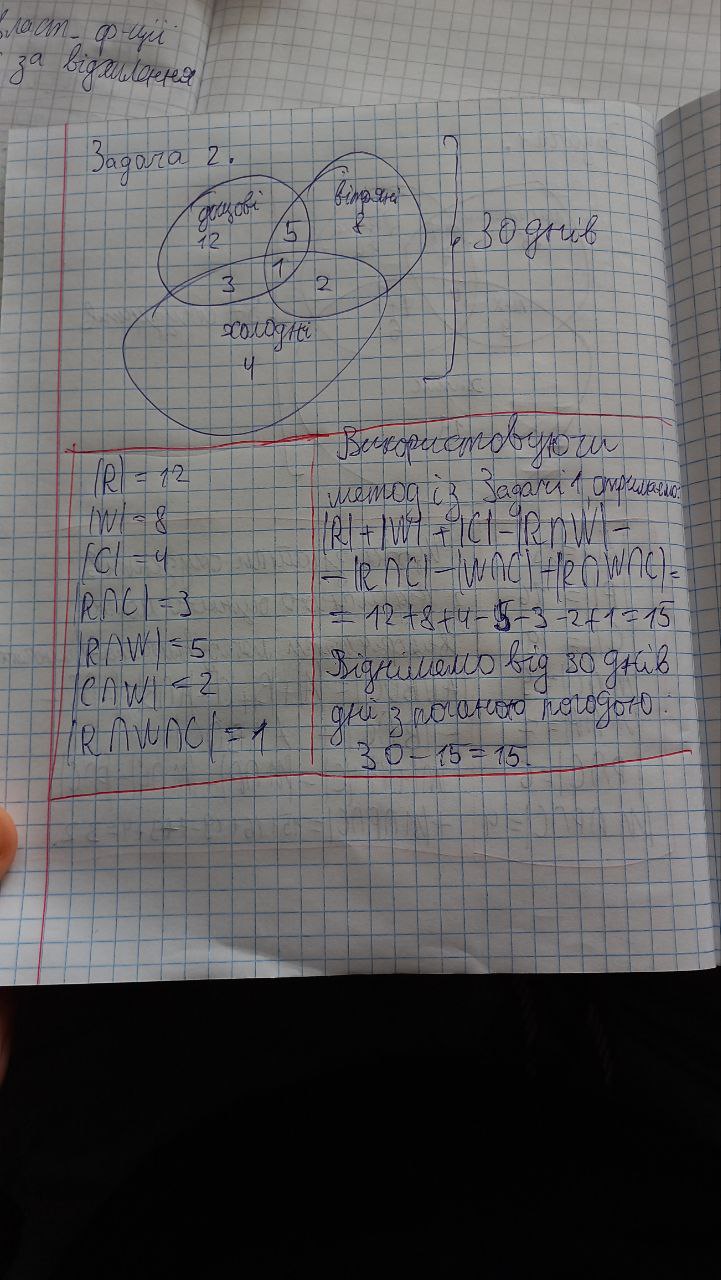 власт. ф-ції
за відхилення
Задача 2.
дощові
12
5
вітряні
8
30 днів
1
3
2
холодні
4
|R| = 12
|W| = 8
|C| = 4
|R∩C| = 3
|R∩W| = 5
|C∩W| = 2
|R∩W∩C| = 1
Використовуючи
метод із Задачі 1 отримаємо:
|R|+|W|+|C|-|R∩W|-
-|R∩C|-|W∩C|+|R∩W∩C|=
= 12+8+4-5-3-2+1=15
Віднімемо від 30 днів
дні з поганою погодою:
30-15=15.